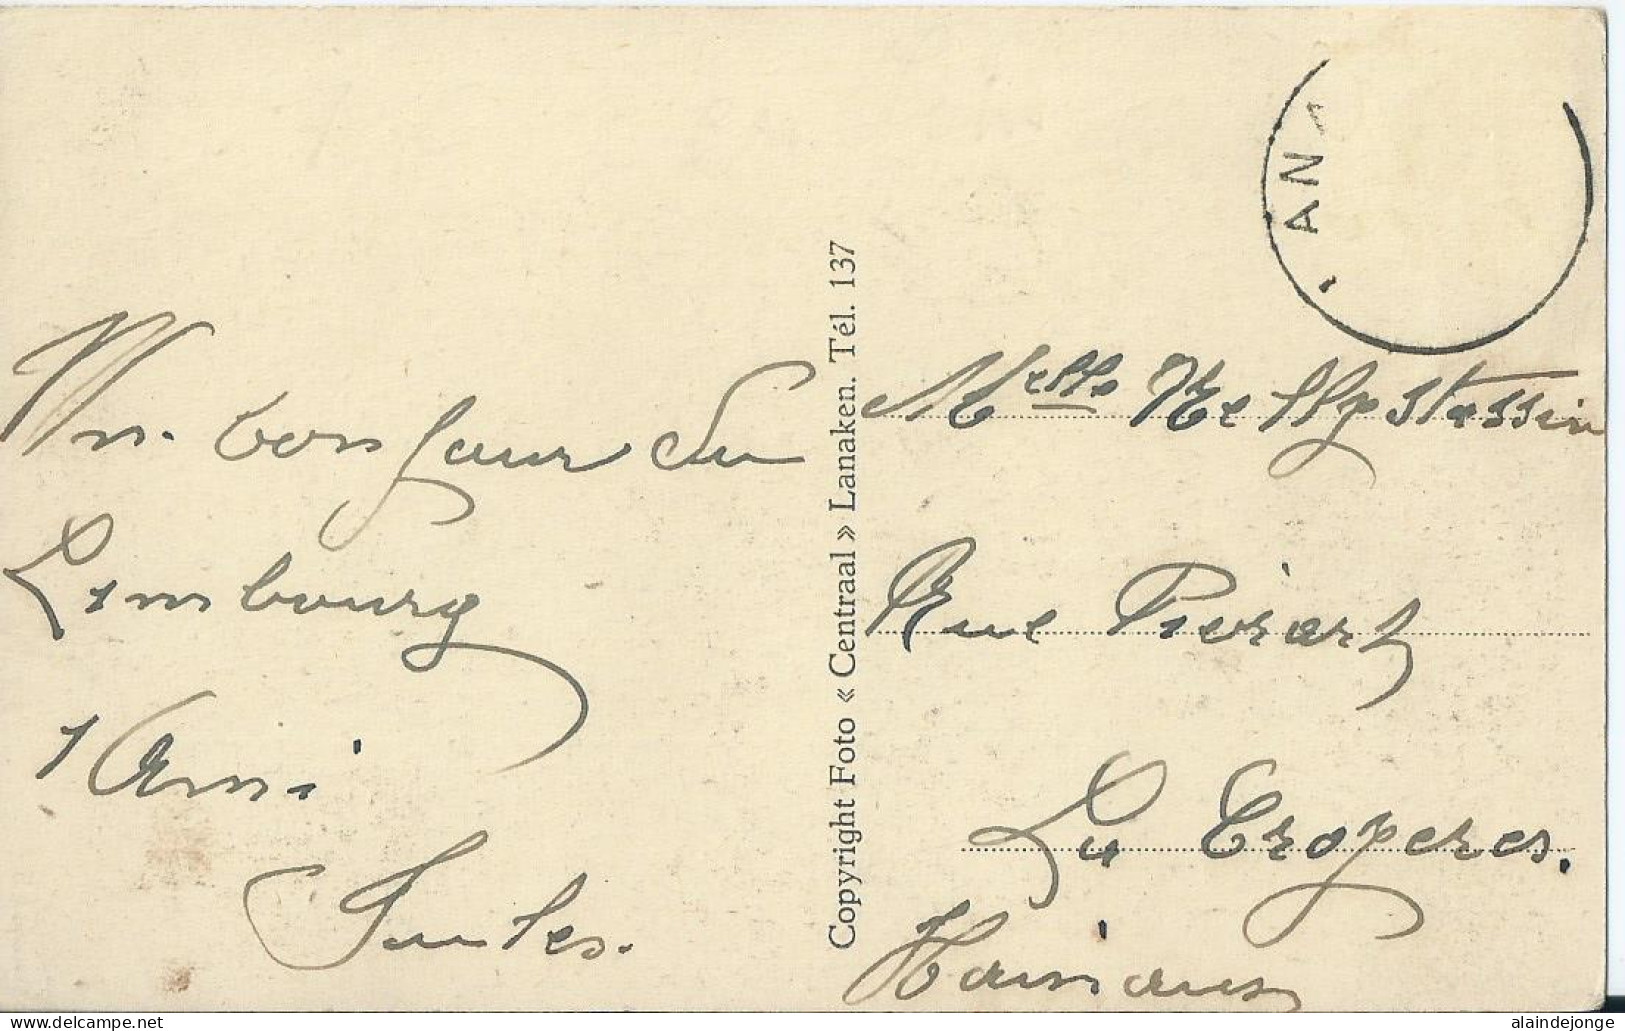 Un bonjour du
Limbourg
1 Ami
Jules.
Copyright Foto « Centraal » Lanaken. Tél. 137
ANA
Melle Nelly Stassin
Rue Pierart
La Croyeres.
Hainaux
delcampe.net
alaindejonge